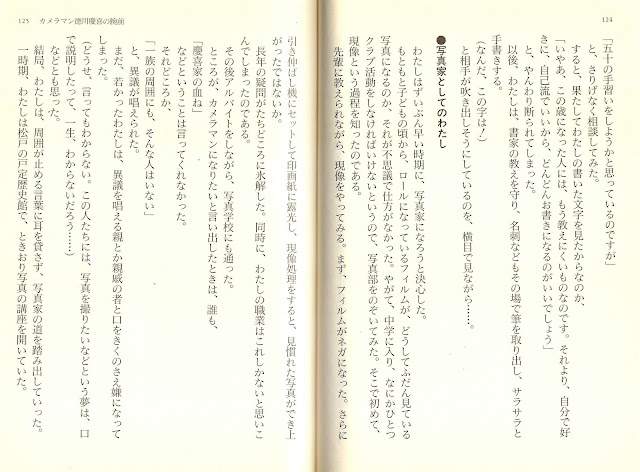 124
「五十の手習いをしようかと思っているのですが」
と、さりげなく相談してみた。
すると、果たしてわたしの書いた文字を見たからなのか、
「いやあ、この歳になった人には、もう教えにくいものなのです。それより、自分で好
きに、自己流でいいから、どんどんお書きになるのがいいでしょう」
と、やんわり断られてしまった。
以後、わたしは、書家の教えを守り、名刺などもその場で筆を取り出し、サラサラと
手書きする。
(なんだ、この字は!)
と相手が吹き出しそうにしているのを、横目で見ながら……。
●写真家としてのわたし
わたしはずいぶん早い時期に、写真家になろうと決心した。
もともと子どもの頃から、ロールになっているフィルムが、どうしてふだん見ている
写真になるのか、それが不思議で仕方がなかった。やがて、中学に入り、なにかひとつ
クラブ活動をしなければいけないというので、写真部をのぞいてみた。そこで初めて、
現像という過程を知ったのである。
先輩に教えられながら、現像をやってみる。まず、フィルムがネガになった。さらに
125 カメラマン徳川慶喜の腕前
引き伸ばし機にセットして印画紙に露光し、現像処理をすると、見慣れた写真ができ上
がったではないか。
長年の疑問がたちどころに氷解した。同時に、わたしの職業はこれしかないと思いこ
んでしまったのである。
その後アルバイトをしながら、写真学校にも通った。
ところが、カメラマンになりたいと言い出したときは、誰も、
「慶喜家の血ね」
などということは言ってくれなかった。
それどころか、
「一族の周囲にも、そんな人はいない」
と、異議が唱えられた。
まだ、若かったわたしは、異議を唱える親とか親戚の者と口をきくのさえ嫌になって
しまった。
(どうせ、言ってもわからない。この人たちには、写真を撮りたいなどという夢は、口
で説明したって、一生、わからないだろう……)
などとも思った。
結局、わたしは、周囲が止める言葉に耳を貸さず、写真家の道を踏み出していった。
一時期、わたしは松戸の戸定歴史館で、ときおり写真の講座を開いていた。